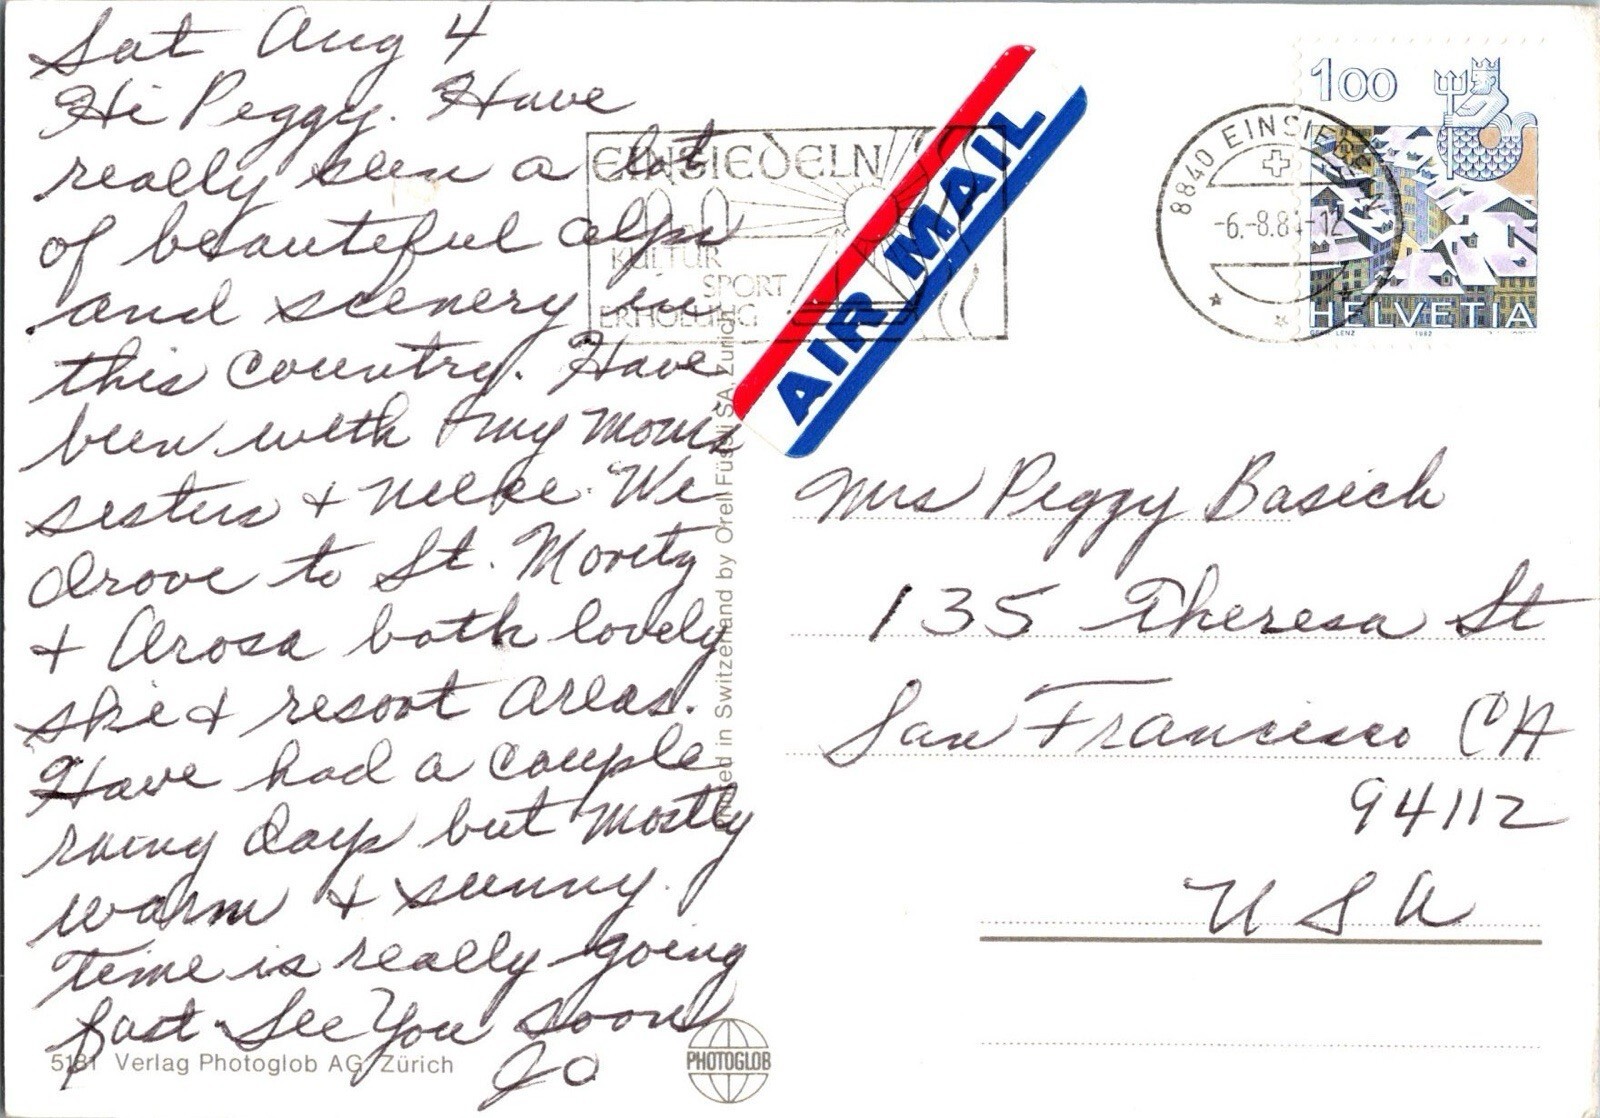 Sat Aug 4
Hi Peggy. Have
really seen a lot
of beautiful alps
and scenery in
this country. Have
been with my Moms
sisters + neice. We
drove to St. Moritz
+ Arosa both lovely
skie + resort areas.
Have had a couple
rainy days but mostly
warm + sunny.
Time is really going
fast. See You soon
Jo
5181 Verlag Photoglob AG, Zürich
PHOTOGLOB
in Switzerland by Orell Füssli SA, Zürich
EINSIEDELN
KULTUR
SPORT
ERHOLUNG
AIR MAIL
8840 EINSIEDELN
-6.-8.84-12
100
HELVETIA
LENZ 1982
Mrs Peggy Basich
135 Theresa St
San Francisco CA
94112
U S A